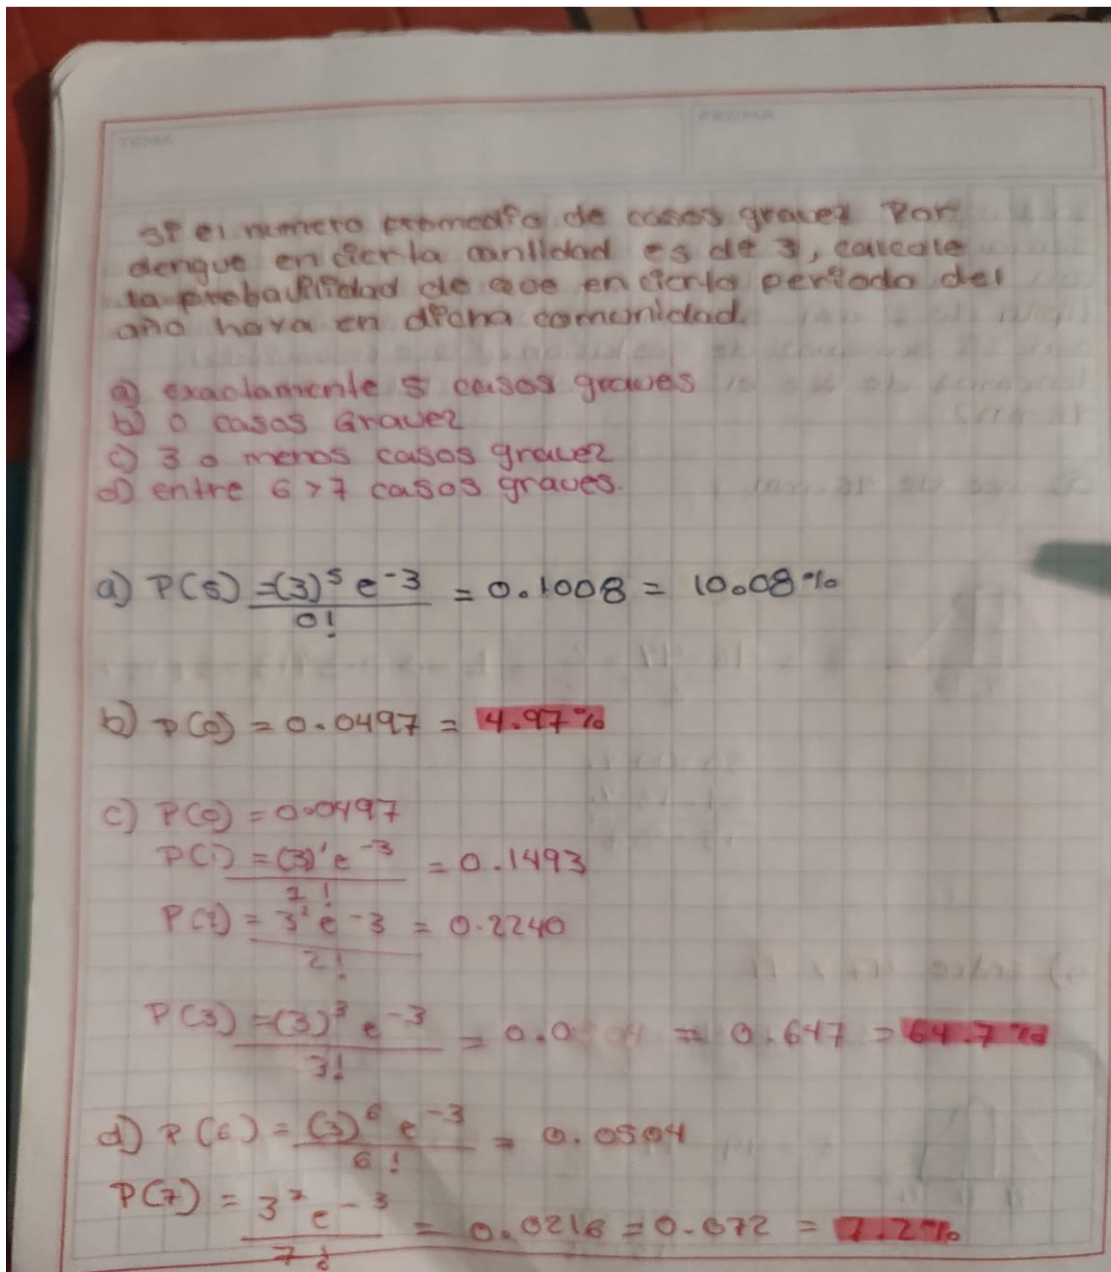 TEMA
FECHA
si el numero promedio de casos gravez Por
dengue en cierta cantidad es de 3, calcule
la probabilidad de que en cierto periodo del
año haya en dicha comunidad.
a) exactamente 5 casos graves
b) 0 casos Gravez
c) 3 o menos casos gravez
d) entre 6 y 7 casos graves.
a) P(5) = (3)^5 e^-3 / 0! = 0.1008 = 10.08%
b) P(0) = 0.0497 = 4.97%
c) P(0) = 0.0497
P(1) = (3)^1 e^-3 / 1! = 0.1493
P(2) = 3^2 e^-3 / 2! = 0.2240
P(3) = (3)^3 e^-3 / 3! = 0.0 = 0.647 = 64.7%
d) P(6) = (3)^6 e^-3 / 6! = 0.0504
P(7) = 3^7 e^-3 / 7! = 0.0216 = 0.072 = 7.2%